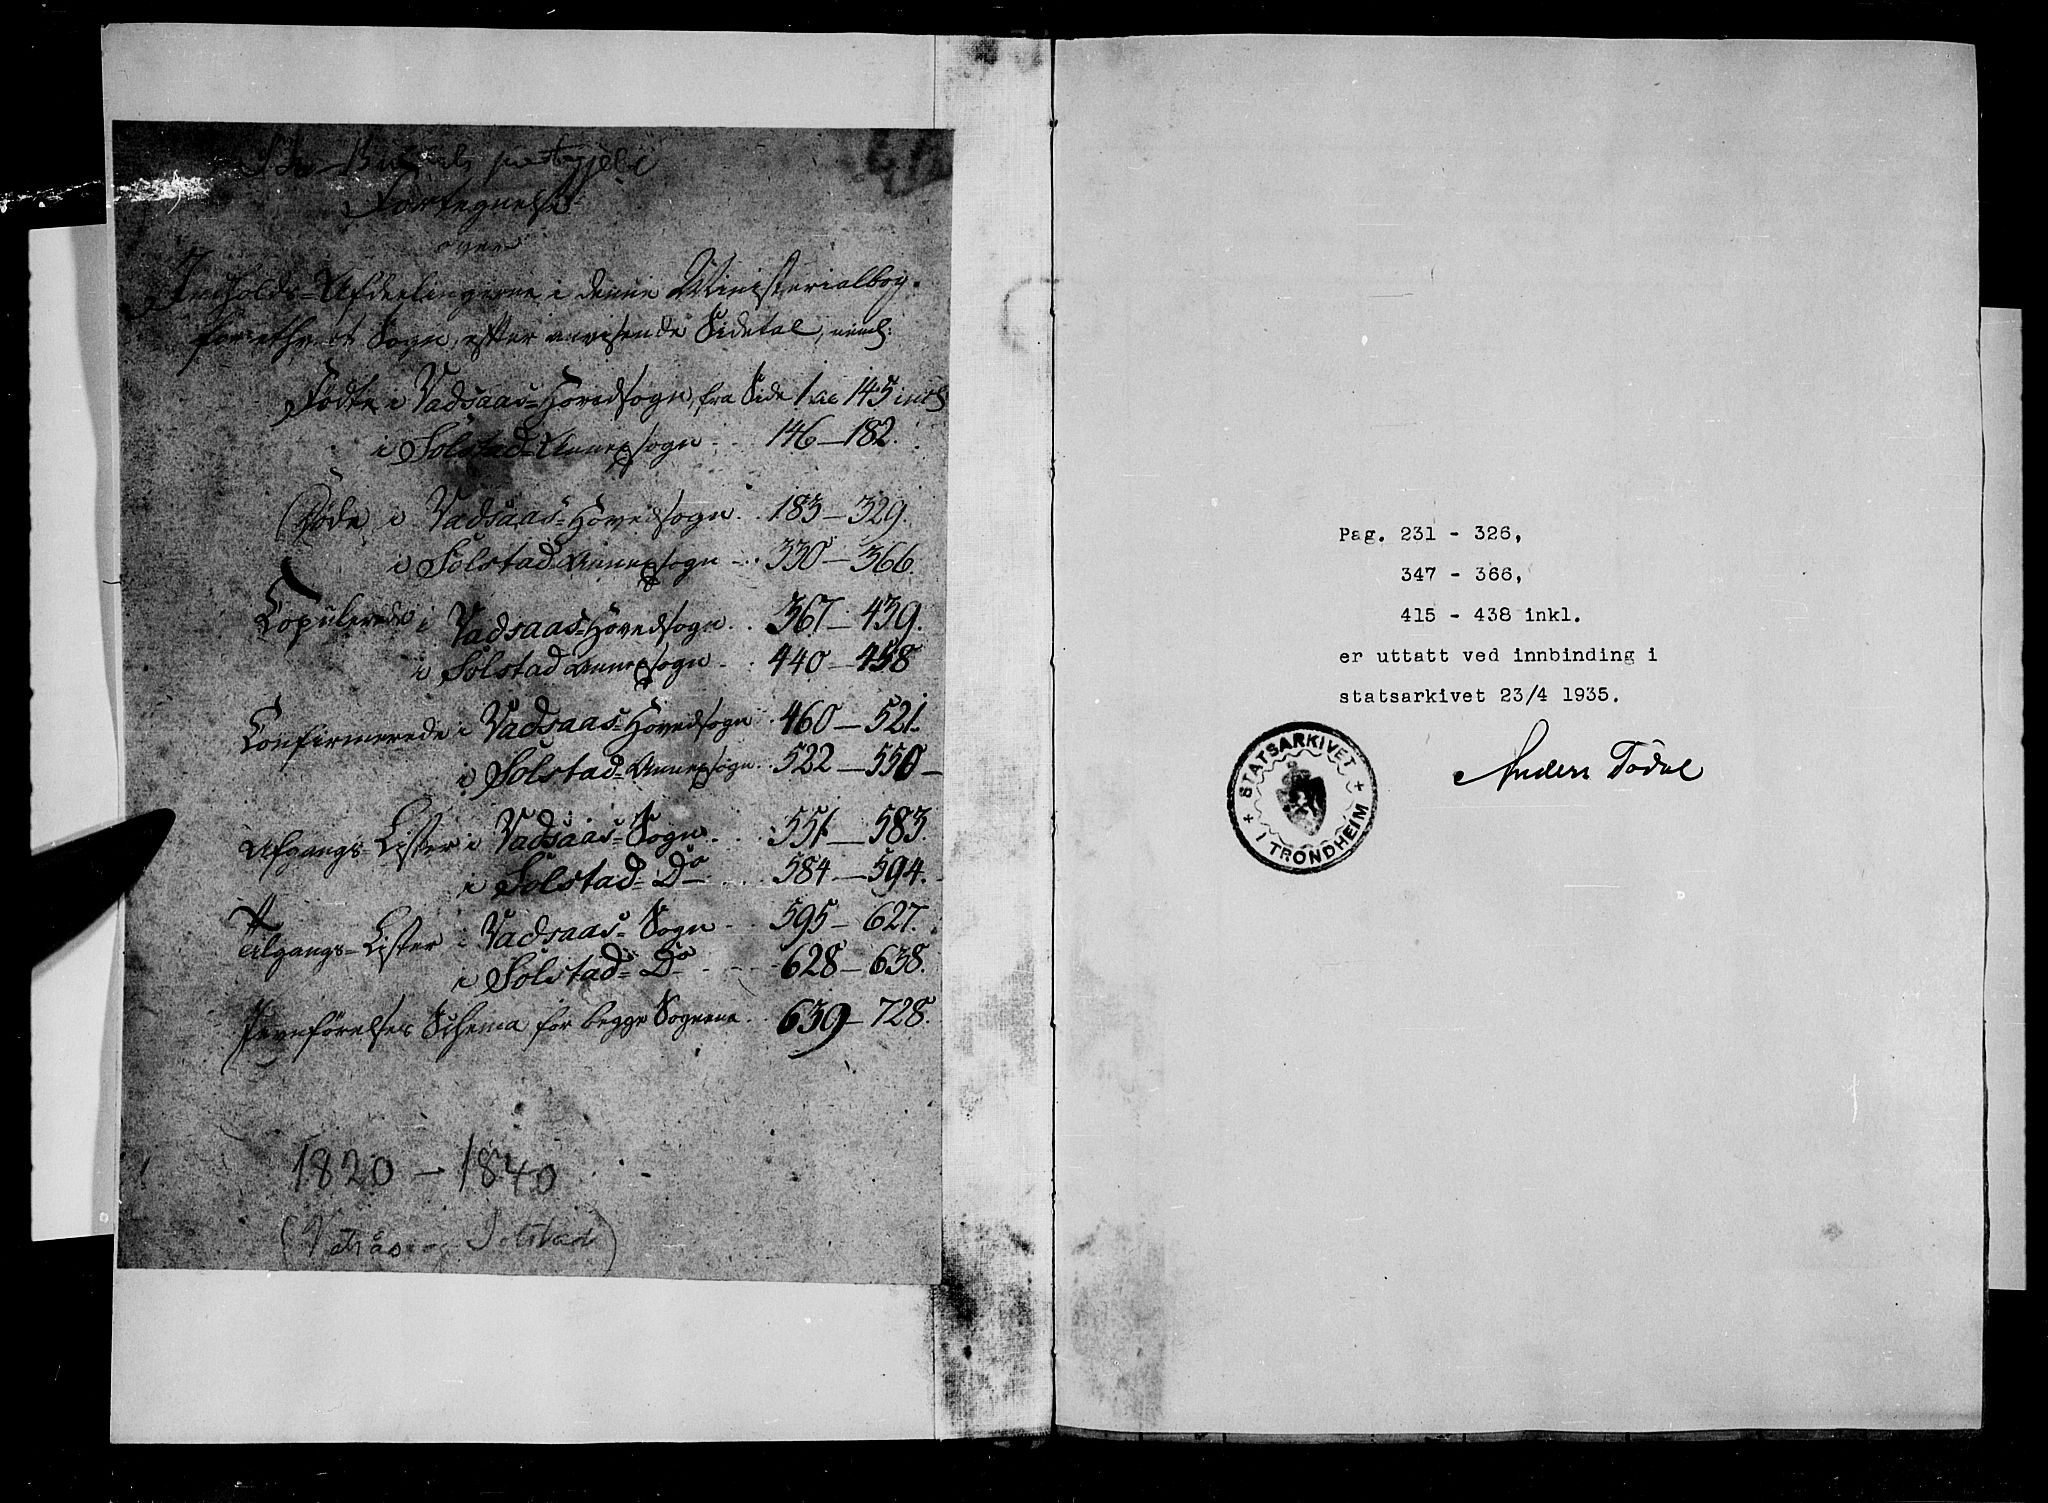 prestegjeld
Fortegnelse
over
Indholds-Afdelingerne i denne Ministerialbog
for ethvert Sogn, efter anvisende Sidetal, neml:
Fødte i Vadsaas-Hovedsogn, fra Side 1 til 145 incl
i Solstad-Annexsogn 146 - 182.
Døde i Vadsaas-Hovedsogn 183 - 329.
i Solstad Annexsogn 330 - 366.
Copulerede i Vadsaas-Hovedsogn 367 - 439.
i Solstad Annexsogn 440 - 458
Confirmerede i Vadsaas-Hovedsogn 460 - 521.
i Solstad-Annexsogn 522 - 550 -
Afgangs-Lister i Vadsaas-Sogn 551 - 583.
i Solstad-Do 584 - 594.
Tilgangs-Lister i Vadsaas-Sogn 595 - 627.
i Solstad-Do 628 - 638.
Jevnførelses Schema for begge Sognene 639 - 728.
1820 - 1840
(Vatsås og Solstad)
Pag. 231 - 326,
347 - 366,
415 - 438 inkl.
er uttatt ved innbinding i
statsarkivet 23/4 1935.
Anders Todal
STATSARKIVET
I TRONDHEIM